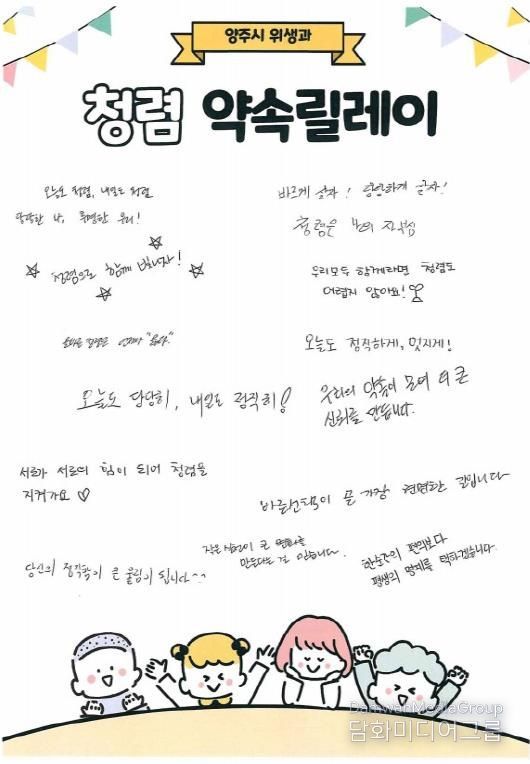 양주시 위생과
청렴 약속릴레이
오늘도 청렴, 내일도 청렴
당당한 나, 투명한 우리!
바르게 살자! 당당하게 살자!
청렴은 나의 자부심
청렴으로 함께 빛나자!
우리모두 함께라면 청렴도
어렵지 않아요!
오늘도 정직하게, 멋지게!
오늘도 당당히, 내일도 정직히!
우리의 약속이 모여 더 큰
신뢰를 만듭니다.
서로가 서로의 힘이 되어 청렴을
지켜가요♡
바른선택이 곧 가장 현명한 길입니다
작은 실천이 큰 변화를
만든다는 걸 믿습니다.
한순간의 편의보다
평생의 명예를 택하겠습니다.
당신의 정직함이 큰 울림이 됩니다^^
DamwhaMediaGroup
담화미디어그룹